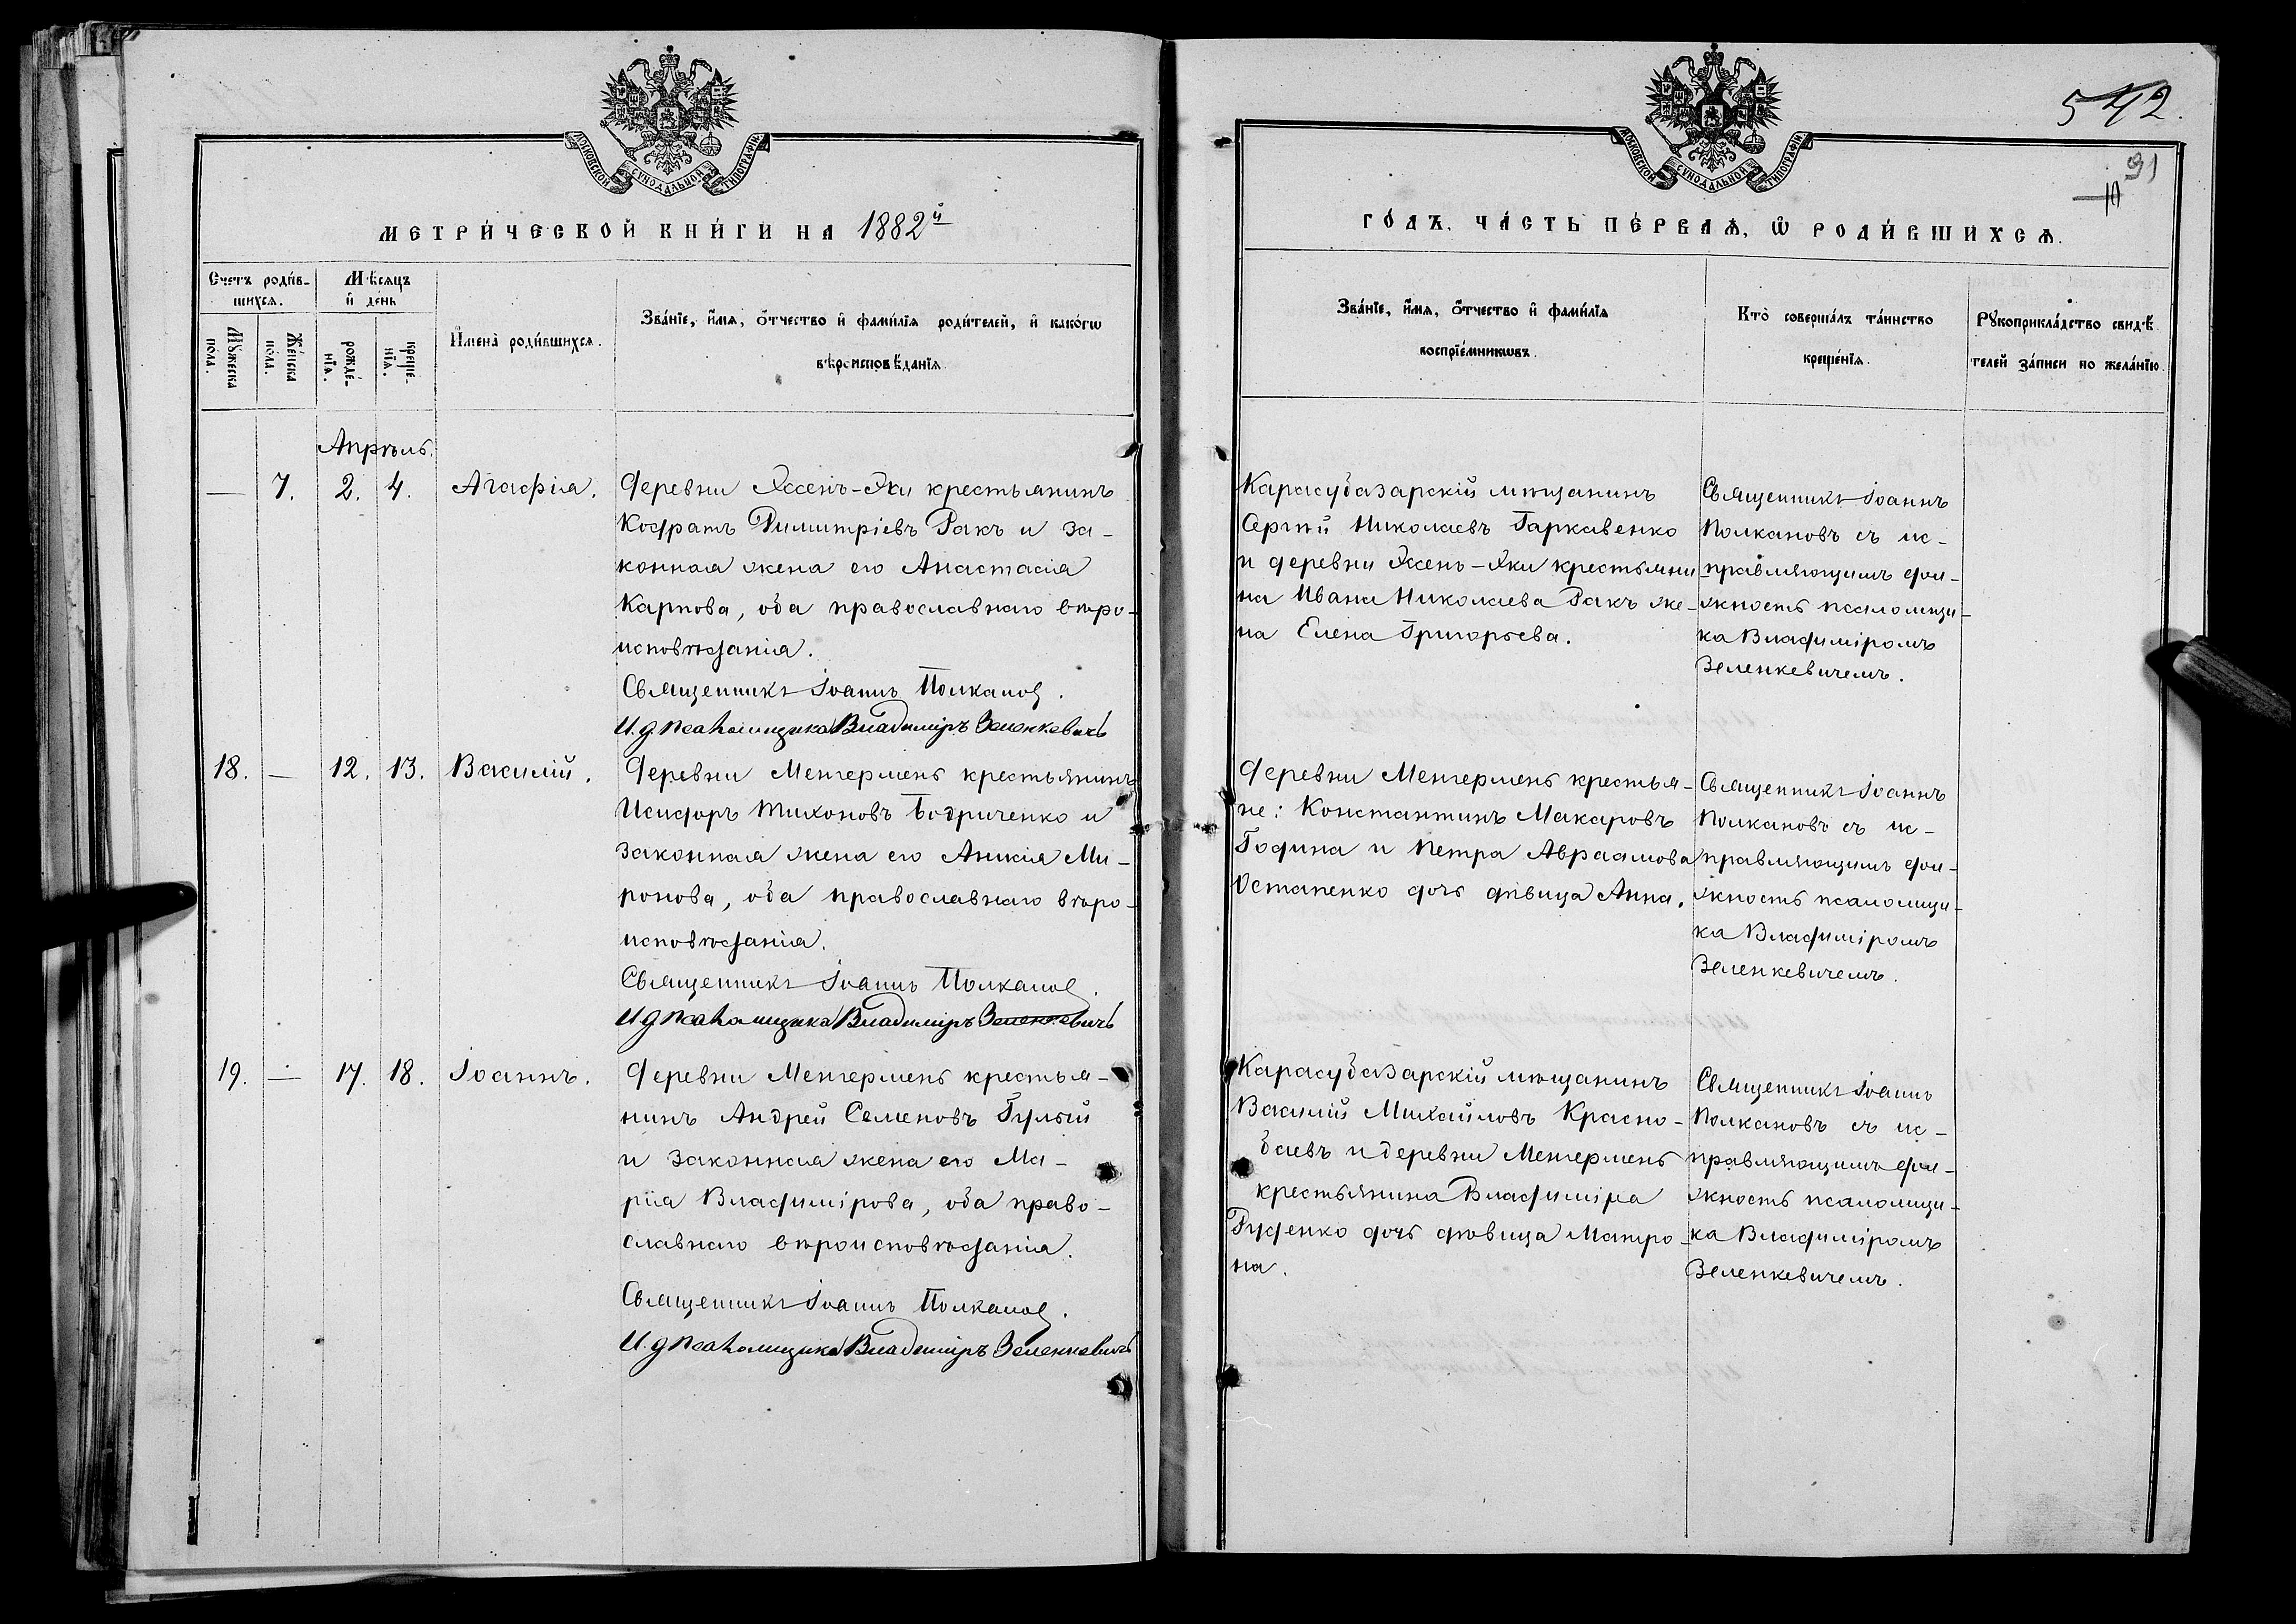 МОСКОВСКОЙ СѴНОДАЛЬНОЙ ТИПОГРАФІИ
МЕТРИ́ЧЕСКОЙ КНИ́ГИ НА 1882й
Счетъ роди́в-
шихся.
Мѣсяцъ
и҆ де́нь
Мꙋ́жеска
по́ла.
Же́нска
по́ла.
рожде́-
нїѧ.
креще́-
нїѧ.
И҆мена̀ роди́вшихсѧ.
Зва́нїе, и҆́мѧ, ѻ҆́тчество и҆ фами́лїѧ роди́телей, и҆ како́гѡ
вѣроисповѣ́данїѧ
Апрѣль.
— 7. 2. 4. Агафія.
Деревни Джень-Эки крестьянинъ
Кодратъ Димитріевъ Ракъ и за-
конная жена его Анастасія
Карпова, оба православнаго вѣро-
исповѣданія.
Священникъ Іоаннъ Полканов.
И. д. псаломщика Владиміръ Зеленкевичъ
18. — 12. 13. Василій.
Деревни Менгермень крестьянинъ
Исидоръ Тихоновъ Бодриченко и
законная жена его Анисія Ми-
ронова, оба православнаго вѣро-
исповѣданія.
Священникъ Іоаннъ Полканов.
И д псаломщика Владиміръ Зеленкевичъ
19. — 17. 18. Іоаннъ.
Деревни Менгермень крестья-
нинъ Андрей Семеновъ Гулый
и законная жена его Ма-
рія Владимірова, оба право-
славнаго вѣроисповѣданія.
Священникъ Іоаннъ Полканов.
И. д псаломщика Владиміръ Зеленкевичъ
542.
31
МОСКОВСКОЙ СѴНОДАЛЬНОЙ ТИПОГРАФІИ
ГО́ДЪ. ЧА́СТЬ ПЕ́РВАѦ, Ѽ РОДИ́ВШИХСѦ.
Зва́нїе, и҆́мѧ, ѻ҆́тчество и҆ фами́лїѧ
воспрїе́мникѡвъ.
Кто̀ соверша́лъ та́инство
креще́нїѧ.
Рꙋкоприкла́дство свидѣ́
телей за́писи по жела́нїю.
Карасубазарскій мѣщанинъ
Сергѣй Николаевъ Гаркавенко
и деревни Джень-Эки крестьяни
на Ивана Николаева Ракъ же-
на Елена Григорьева.
Священникъ Іоаннъ
Полкановъ съ ис-
правляющимъ дол-
жность псаломщи-
ка Владиміромъ
Зеленкевичемъ.
Деревни Менгермень крестья-
не: Константинъ Макаровъ
Година и Петра Авраамова
Остапенко дочь дѣвица Анна.
Священникъ Іоаннъ
Полкановъ съ ис-
правляющимъ дол-
жность псаломщи-
ка Владиміромъ
Зеленкевичемъ.
Карасубазарскій мѣщанинъ
Василій Михайловъ Красно-
баевъ и деревни Менгермень
крестьянина Владиміра
Руденко дочь дѣвица Матро-
на.
Священникъ Іоаннъ
Полкановъ съ ис-
правляющимъ дол-
жность псаломщи-
ка Владиміромъ
Зеленкевичемъ.